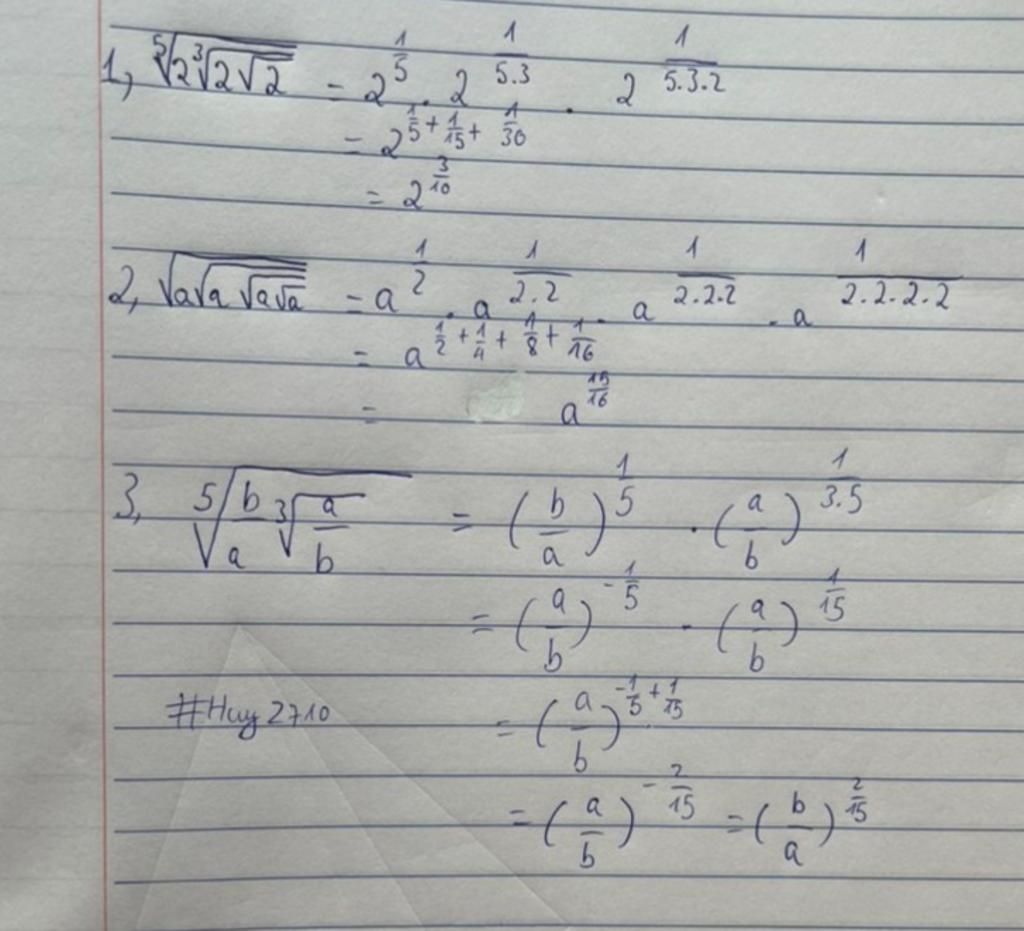 1, ⁵√(2 ³√(2√2)) = 2^(1/5) . 2^(1/5.3) . 2^(1/5.3.2)
= 2^(1/5 + 1/15 + 1/30)
= 2^(3/10)
2, √(a√(a√(a√a))) = a^(1/2) . a^(1/2.2) . a^(1/2.2.2) . a^(1/2.2.2.2)
= a^(1/2 + 1/4 + 1/8 + 1/16)
= a^(15/16)
3, ⁵√(b/a ³√(a/b)) = (b/a)^(1/5) . (a/b)^(1/3.5)
= (a/b)^(-1/5) . (a/b)^(1/15)
#Huy2710 = (a/b)^(-1/5 + 1/15)
= (a/b)^(-2/15) = (b/a)^(2/15)